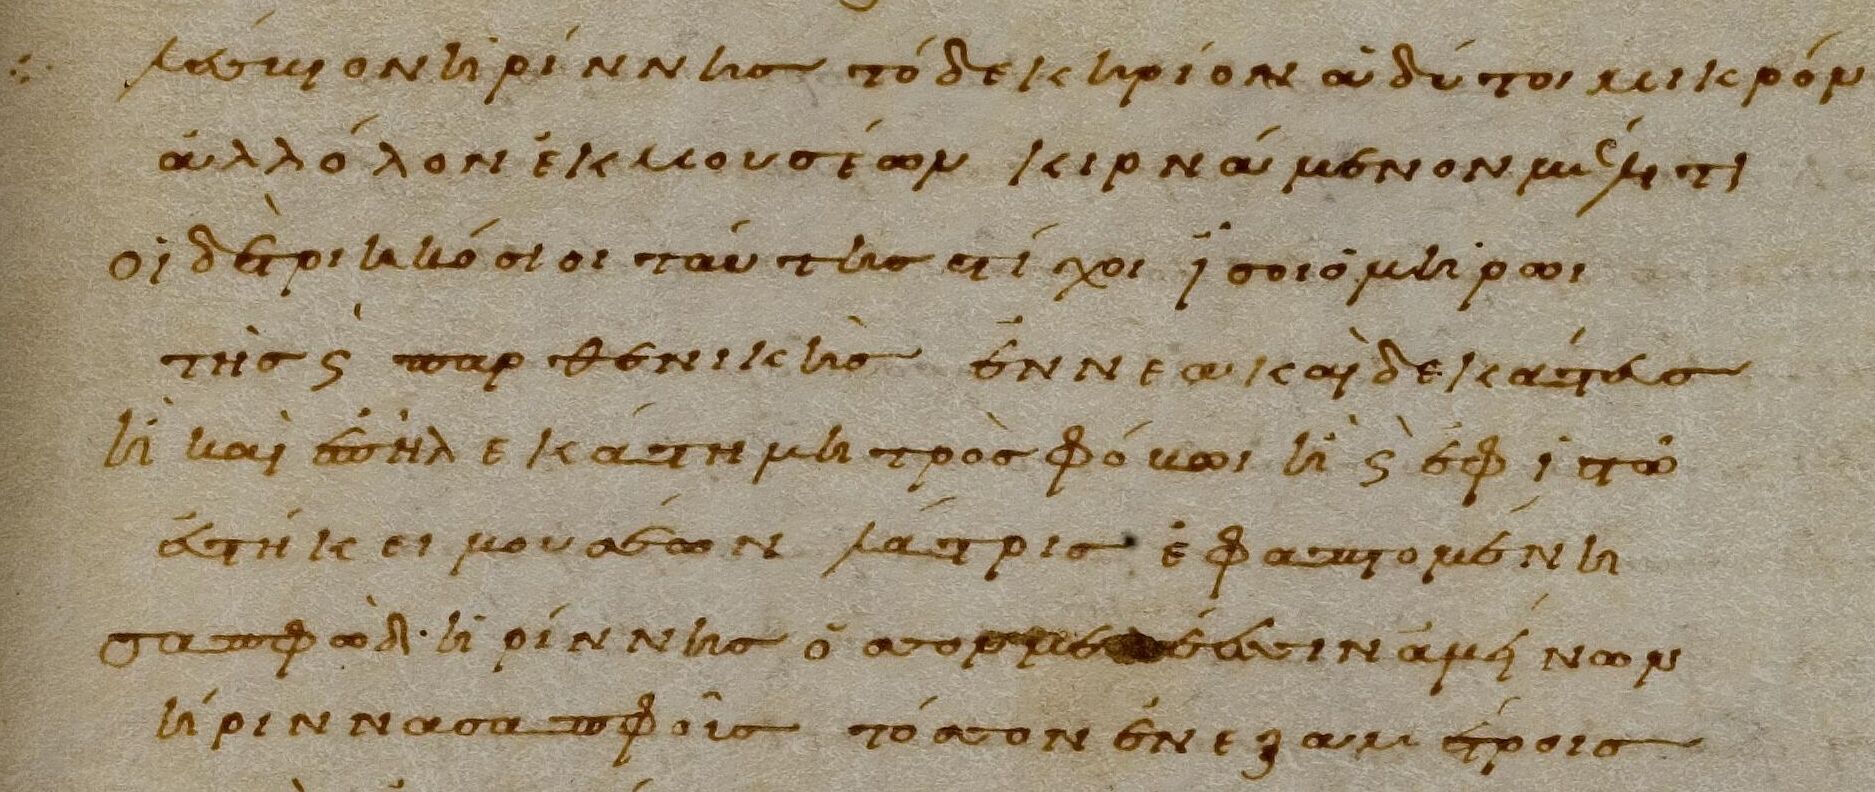 λέσβιον ἠρίννης τόδε κηρίον ἁδύ τοι μικρόν
ἀλλ ὅλον ἐκ μουσέων κιρνάμενον μέλιτι
οἱ δὲ τριηκόσιοι ταύτης στίχοι ἶσοι ὁμήρωι
τῆς καὶ παρθενικῆς ἐννεακαιδεκάτευς
ἣ καὶ ἐπ ἠλεκάτη μητρὸς φόβωι ἣ καὶ ἐφ ἱστῶ
ἑστήκει μουσέων λάτρις ἐφαπτομένη
σαπφὼ δ ἠρίννης ὅσσον μελέεσσιν ἀμείνων
ἤριννα σαπφοῦς τόσσον ἐν ἑξαμέτροις